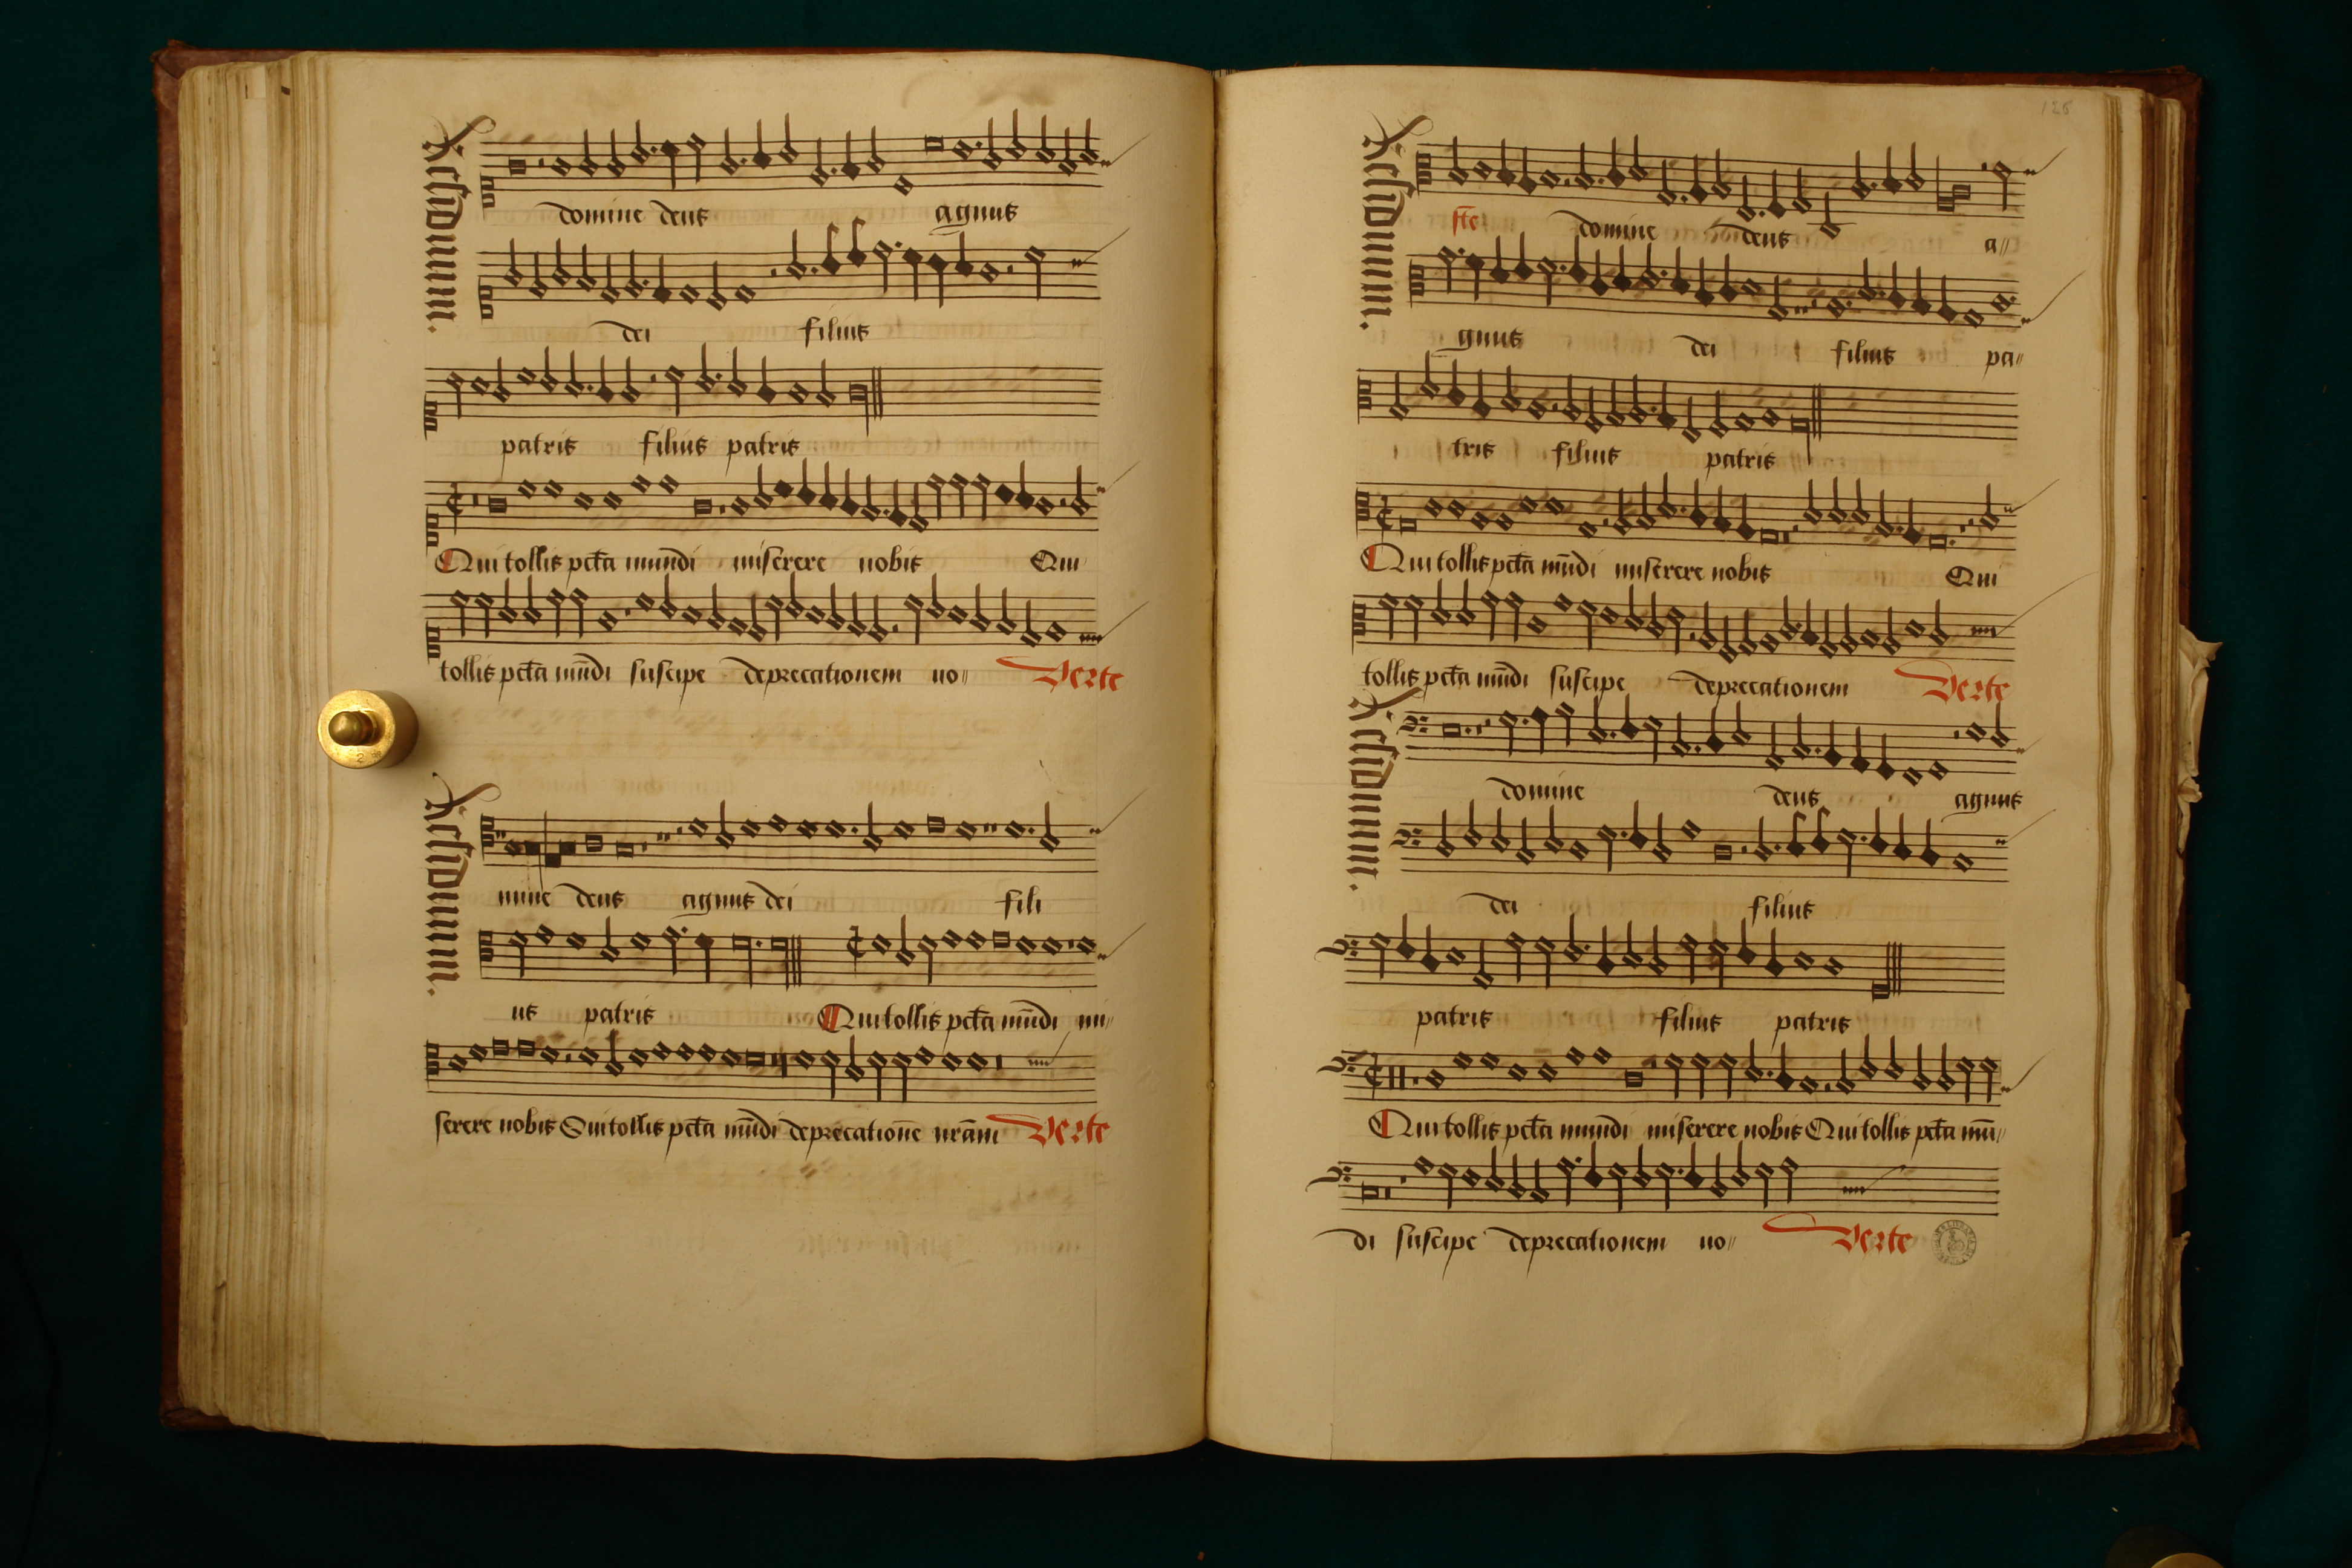 Residuum.
domine deus agnus
dei filius
patris filius patris
Qui tollis pctã mũdi miserere nobis Qui
tollis pctã mũdi suscipe deprecationem no⸗ Verte
Residuum.
mine deus agnus dei fili
us patris Qui tollis pctã mũdi mi⸗
serere nobis Qui tollis pctã mũdi deprecationẽ nrãm Verte
128
Residuum.
ste domine deus a⸗
gnus dei filius pa⸗
tris filius patris
Qui tollis pctã mũdi miserere nobis Qui
tollis pctã mũdi suscipe deprecationem Verte
Residuum.
domine deus agnus
dei filius
patris filius patris
Qui tollis pctã mundi miserere nobis Qui tollis pctã mũ⸗
di suscipe deprecationem no⸗ Verte